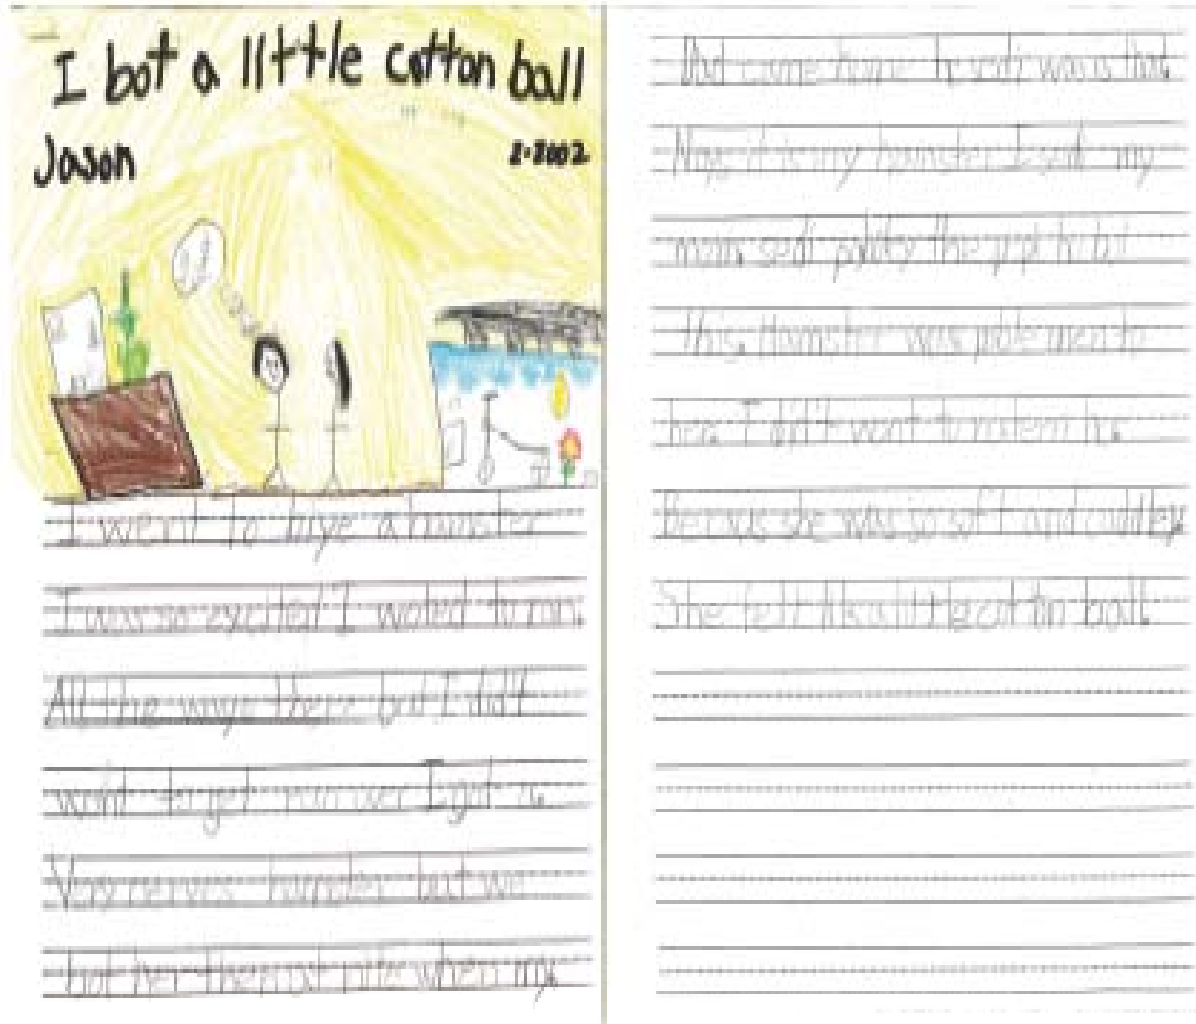 I bot a little cotton ball
Jason
2-2002
I went to biye a hamster
I was so excited I woted to ron.
All the waye there but I did't
wont to get run over I got a.
Very nerves hamster but we
bot her then at when my.
Dad came home he sedi was is that.
Nays it is my hamster I sedi my
mom. sedi the he bot
this. Hamster was to
her. I did't wont to her.
Becaus she was so soft and cuddley.
She felt like a little cot tin ball.